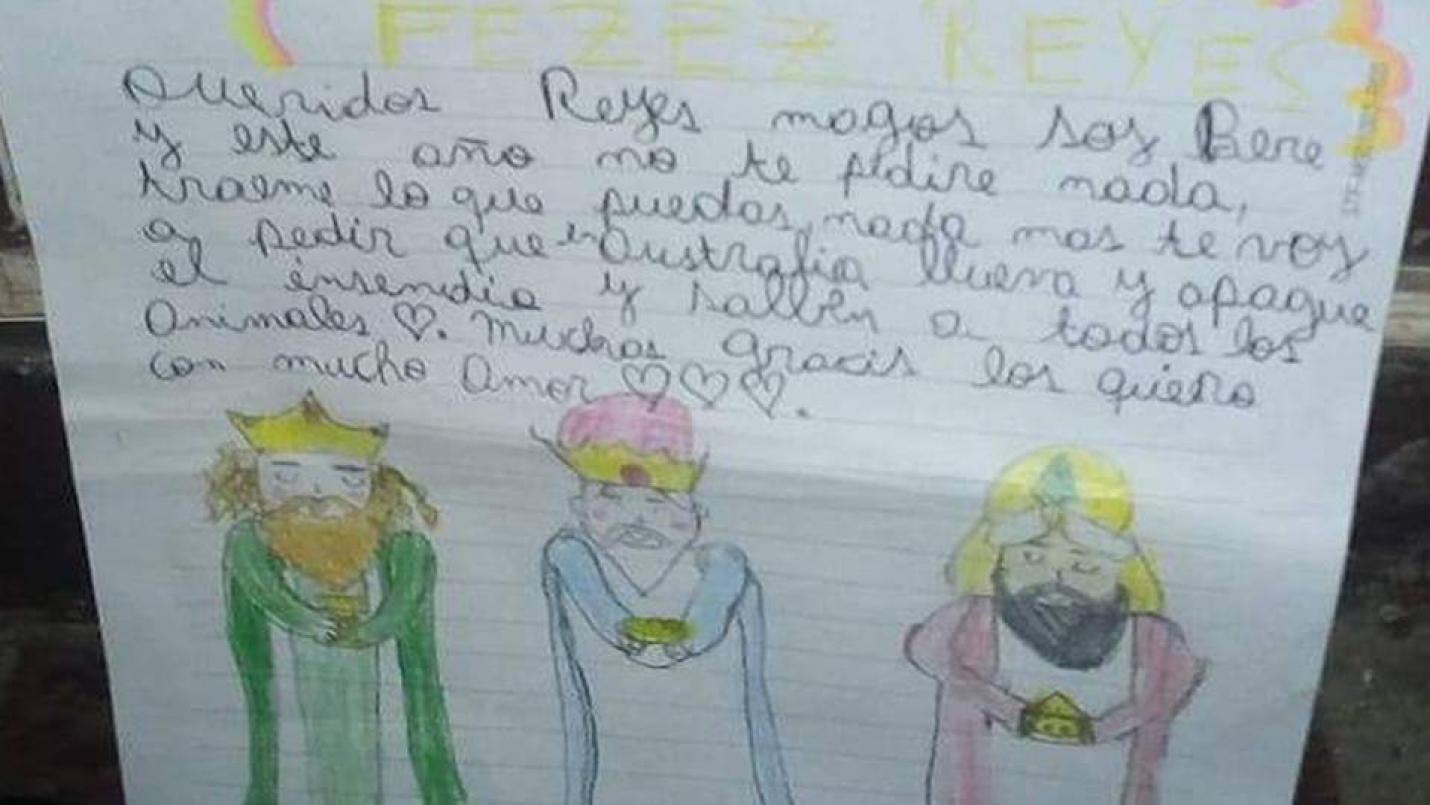 FEZEZ REYES
Queridos Reyes magos soy Bere
y este año no te pidire nada,
traeme lo que puedas, nada mas te voy
a pedir que en Australia llueva y apague
el insendio y sallben a todos los
Animales ♡. Muchas gracis los quiero
con mucho Amor ♡♡♡.